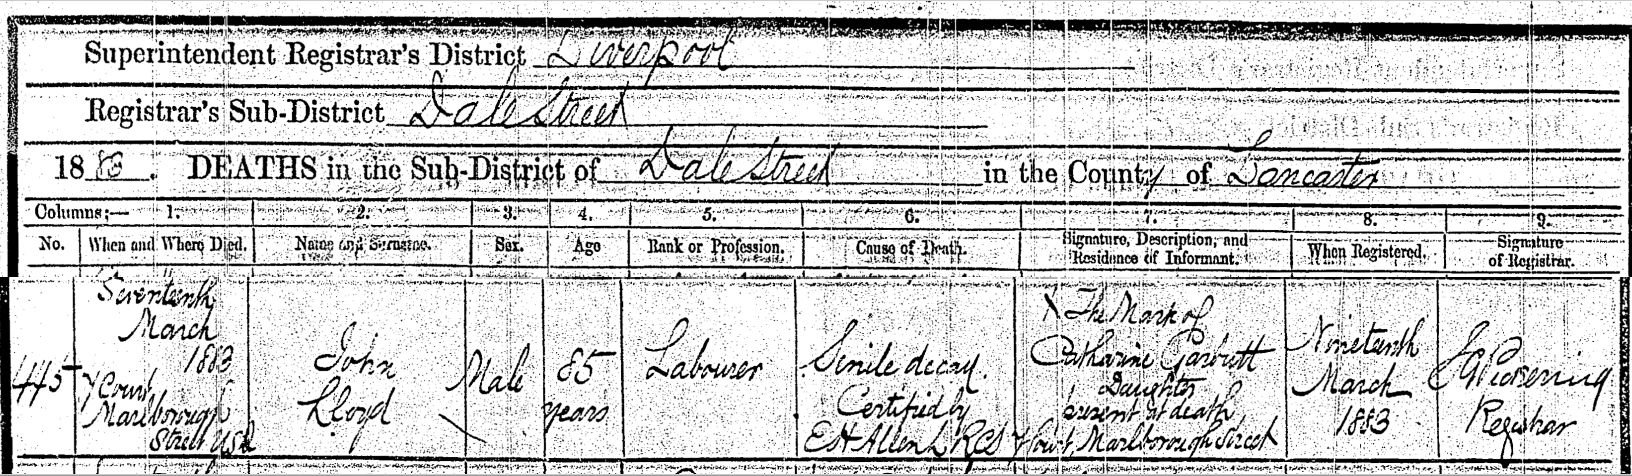 Superintendent Registrar's District Liverpool
Registrar's Sub-District Dale Street
1883. DEATHS in the Sub-District of Dale Street in the County of Lancaster
Columns:— 1. 2. 3. 4. 5. 6. 7. 8. 9.
No. When and Where Died. Name and Surname. Sex. Age Rank or Profession. Cause of Death. Signature, Description, and Residence of Informant. When Registered. Signature of Registrar.
445
Seventeenth
March
1883
7 Court
Marlborough
Street USD
John
Lloyd
Male
85
years
Labourer
Senile decay.
Certified by
E H Allen L RCS
X The Mark of
Catharine Garbutt
Daughter
present at death
7 Court, Marlborough Street
Nineteenth
March
1883
Pickering
Registrar